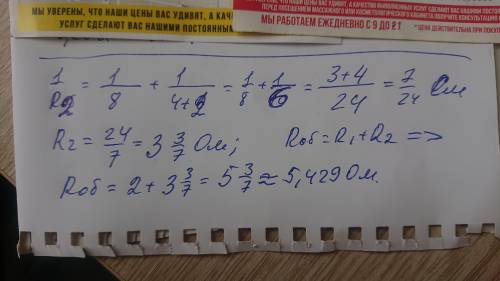 МЫ УВЕРЕНЫ, ЧТО НАШИ ЦЕНЫ ВАС УДИВЯТ, А КАЧЕ
УСЛУГ СДЕЛАЮТ ВАС НАШИМИ ПОСТОЯННЫМ
ЦЕНЫ ВАС УДИВЯТ, А КАЧЕСТВО ВЫПОЛНЕННЫХ УСЛУГ СДЕЛАЮТ ВАС
МЫ РАБОТАЕМ ЕЖЕДНЕВНО С 9 ДО 21
1/R2 = 1/8 + 1/4+2 = 1/8 + 1/6 = 3+4/24 = 7/24 Ом
R2 = 24/7 = 3 3/7 Ом; Rоб = R1 + R2 =>
Rоб = 2 + 3 3/7 = 5 3/7 ≈ 5,429 Ом.